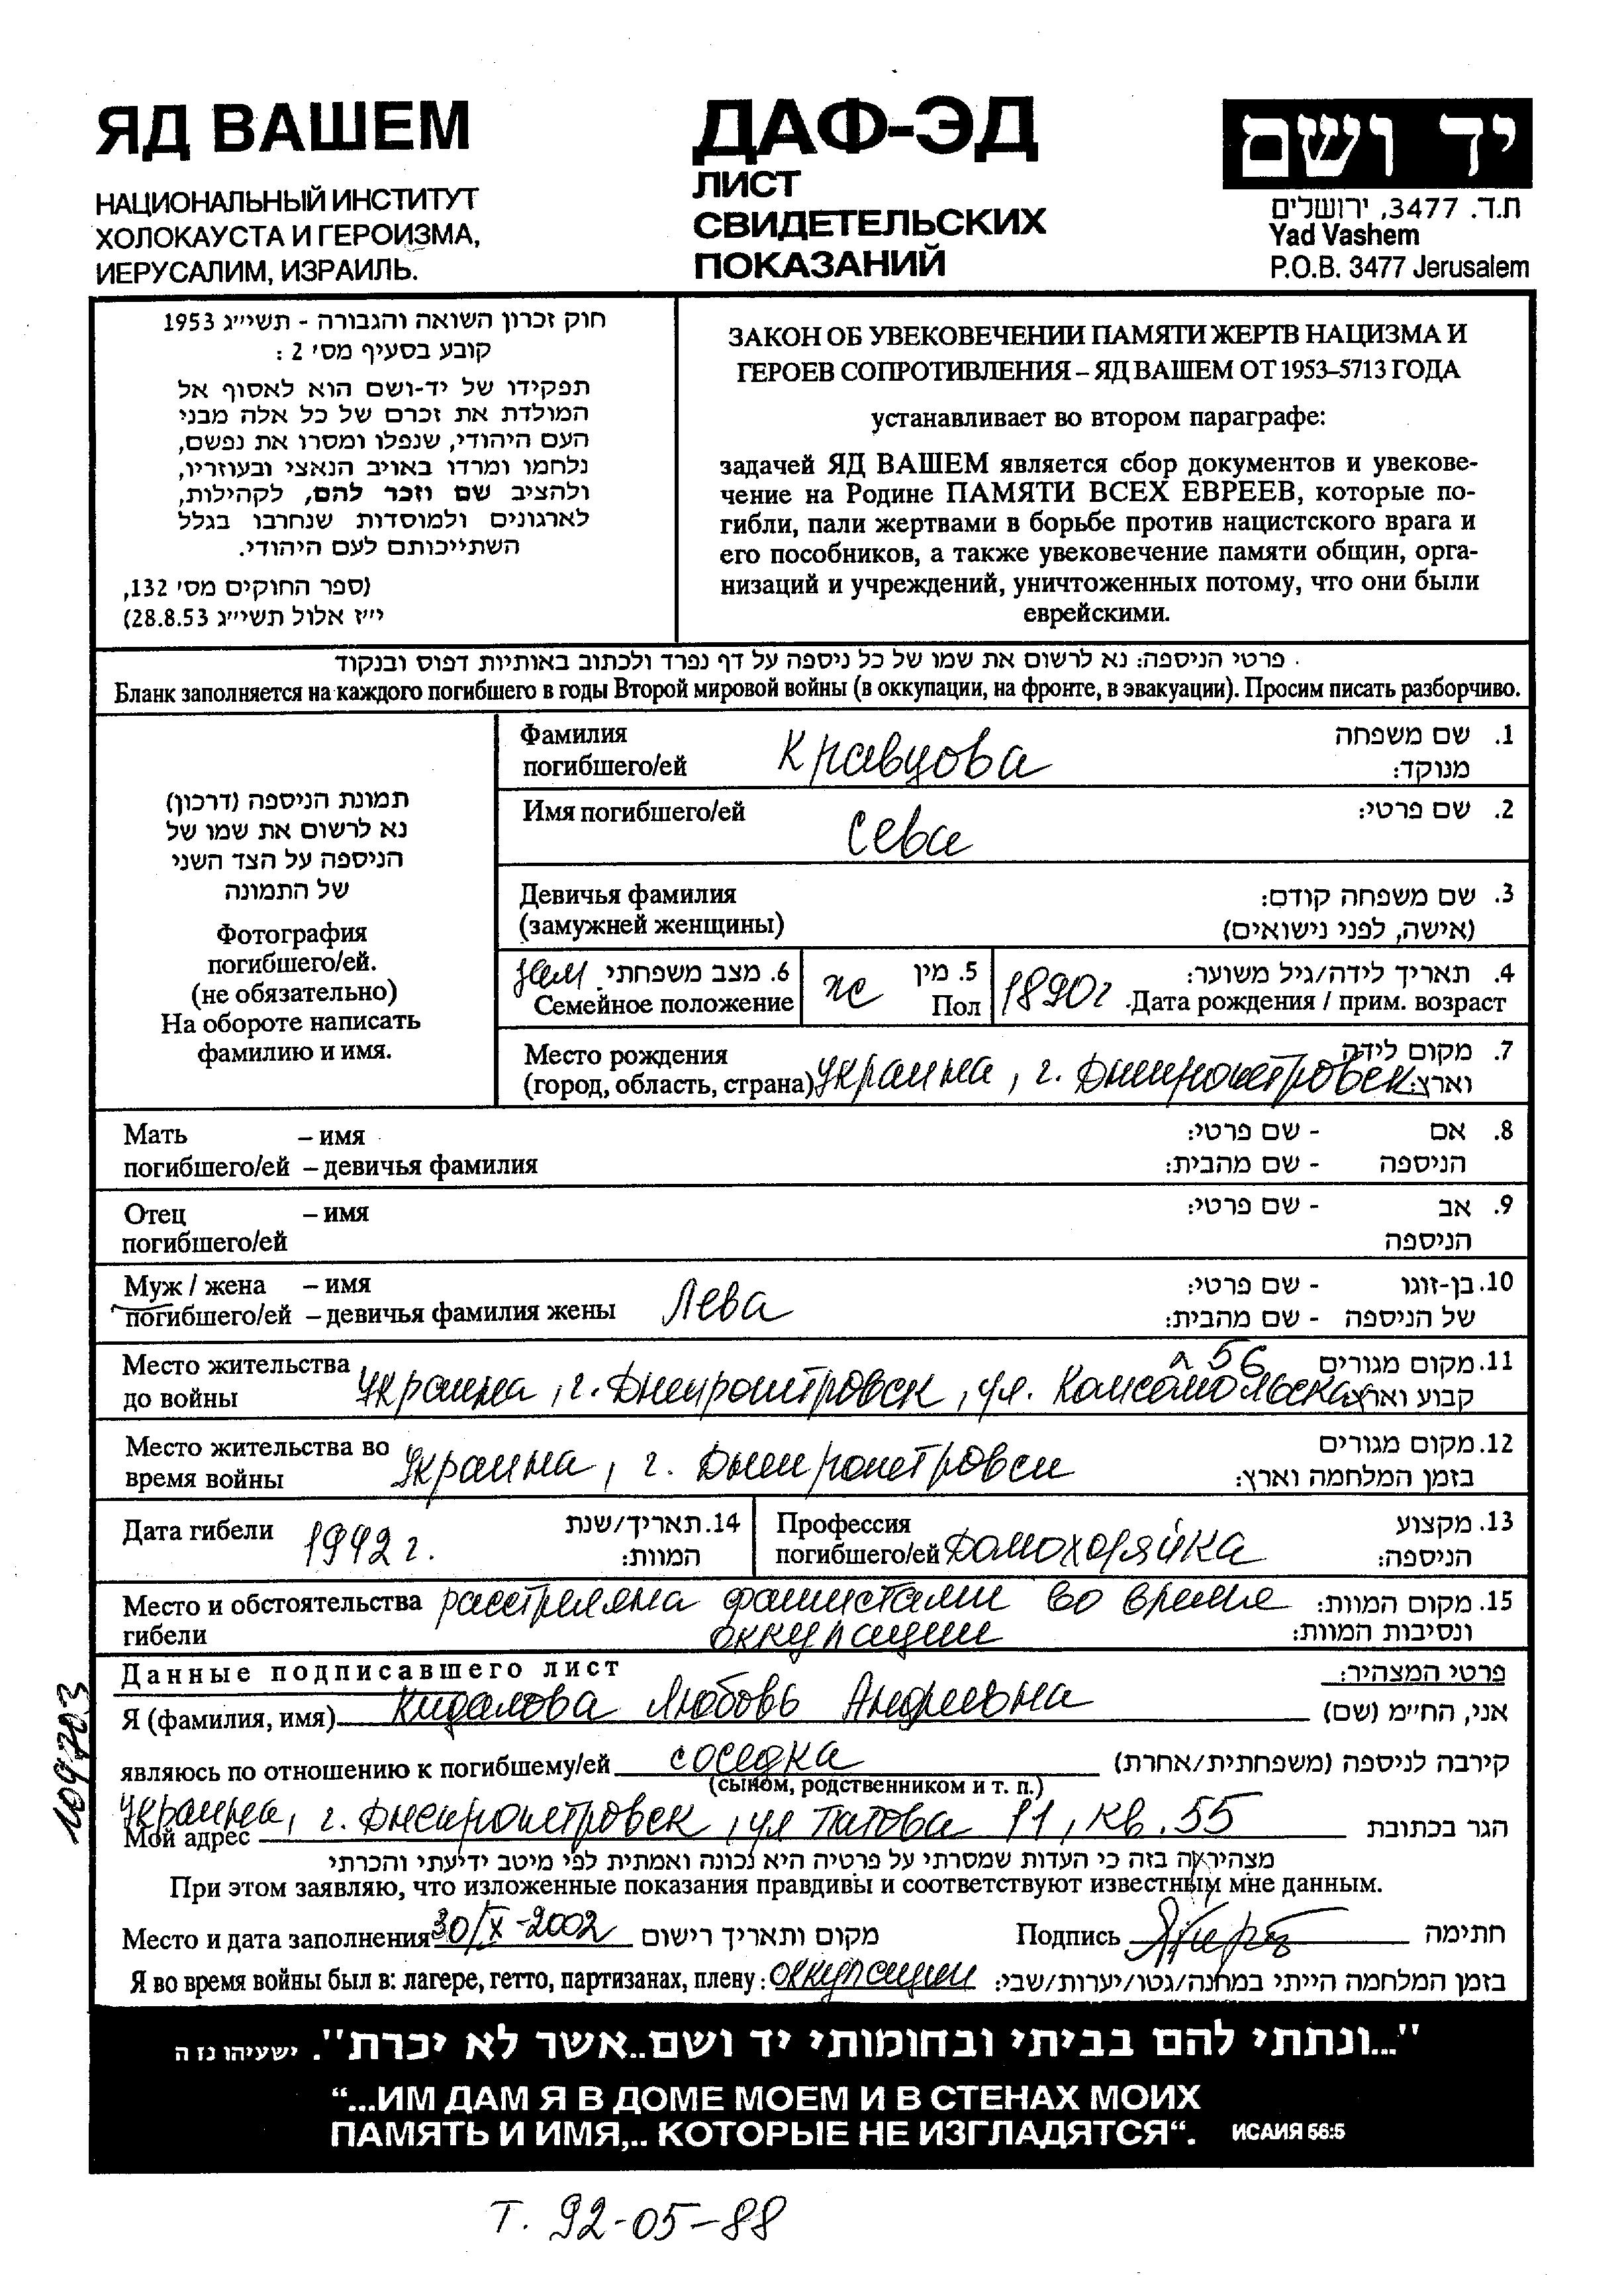 ЯД ВАШЕМ
НАЦИОНАЛЬНЫЙ ИНСТИТУТ
ХОЛОКАУСТА И ГЕРОИЗМА,
ИЕРУСАЛИМ, ИЗРАИЛЬ.
ДАФ-ЭД
ЛИСТ
СВИДЕТЕЛЬСКИХ
ПОКАЗАНИЙ
יד ושם
ת.ד. 3477, ירושלים
Yad Vashem
P.O.B. 3477 Jerusalem
חוק זכרון השואה והגבורה - תשי״ג 1953
קובע בסעיף מס׳ 2 :
תפקידו של יד-ושם הוא לאסוף אל
המולדת את זכרם של כל אלה מבני
העם היהודי, שנפלו ומסרו את נפשם,
נלחמו ומרדו באויב הנאצי ובעוזריו,
ולהציב שם וזכר להם, לקהילות,
לארגונים ולמוסדות שנחרבו בגלל
השתייכותם לעם היהודי.
(ספר החוקים מס׳ 132,
י״ז אלול תשי״ג 28.8.53)
ЗАКОН ОБ УВЕКОВЕЧЕНИИ ПАМЯТИ ЖЕРТВ НАЦИЗМА И
ГЕРОЕВ СОПРОТИВЛЕНИЯ – ЯД ВАШЕМ ОТ 1953–5713 ГОДА
устанавливает во втором параграфе:
задачей ЯД ВАШЕМ является сбор документов и увекове-
чение на Родине ПАМЯТИ ВСЕХ ЕВРЕЕВ, которые по-
гибли, пали жертвами в борьбе против нацистского врага и
его пособников, а также увековечение памяти общин, орга-
низаций и учреждений, уничтоженных потому, что они были
еврейскими.
פרטי הניספה: נא לרשום את שמו של כל ניספה על דף נפרד ולכתוב באותיות דפוס ובנקוד .
Бланк заполняется на каждого погибшего в годы Второй мировой войны (в оккупации, на фронте, в эвакуации). Просим писать разборчиво.
תמונת הניספה (דרכון)
נא לרשום את שמו של
הניספה על הצד השני
של התמונה
Фотография
погибшего/ей.
(не обязательно)
На обороте написать
фамилию и имя.
Фамилия
погибшего/ей Кравцова
1. שם משפחה
מנוקד:
Имя погибшего/ей Сева 2. שם פרטי:
Девичья фамилия
(замужней женщины)
3. שם משפחה קודם:
(אישה, לפני נישואים)
зам 6. מצב משפחתי
Семейное положение
ж 5. מין
Пол
1890 г 4. תאריך לידה/גיל משוער:
Дата рождения / прим. возраст
Место рождения
(город, область, страна) Украина, г. Днепропетровск
7. מקום לידה
וארץ:
Мать – имя
погибшего/ей – девичья фамилия
8. אם - שם פרטי:
הניספה - שם מהבית:
Отец – имя
погибшего/ей
9. אב - שם פרטי:
הניספה
Муж / жена – имя
погибшего/ей – девичья фамилия жены Лева
10. בן-זוגו - שם פרטי:
של הניספה - שם מהבית:
Место жительства
до войны Украина, г. Днепропетровск, ул. Комсомольская 56
11. מקום מגורים
קבוע וארץ
Место жительства во
время войны Украина, г. Днепропетровск
12. מקום מגורים
בזמן המלחמה וארץ:
Дата гибели 1942 г.
14. תאריך/שנת
המוות:
Профессия
погибшего/ей Домохоряйка
13. מקצוע
הניספה:
Место и обстоятельства расстреляна фашистами во время
гибели оккупации
15. מקום המוות:
ונסיבות המוות:
Данные подписавшего лист פרטי המצהיר:
Я (фамилия, имя) Кидалова Любовь Андреевна אני, הח״מ (שם)
являюсь по отношению к погибшему/ей соседка קירבה לניספה (משפחתית/אחרת)
(сыном, родственником и т. п.)
Мой адрес Украина, г. Днепропетровск, ул Титова 11, кв. 55 הגר בכתובת
מצהיר/ה בזה כי העדות שמסרתי על פרטיה היא נכונה ואמתית לפי מיטב ידיעתי והכרתי
При этом заявляю, что изложенные показания правдивы и соответствуют известным мне данным.
Место и дата заполнения 30/X-2002 מקום ותאריך רישום Подпись חתימה
Я во время войны был в: лагере, гетто, партизанах, плену: оккупации בזמן המלחמה הייתי במחנה/גטו/יערות/שבי:
109703
"...ונתתי להם בביתי ובחומותי יד ושם..אשר לא יכרת". ישעיהו נז ה
“...ИМ ДАМ Я В ДОМЕ МОЕМ И В СТЕНАХ МОИХ
ПАМЯТЬ И ИМЯ,.. КОТОРЫЕ НЕ ИЗГЛАДЯТСЯ“. ИСАИЯ 56:5
Т. 92-05-88